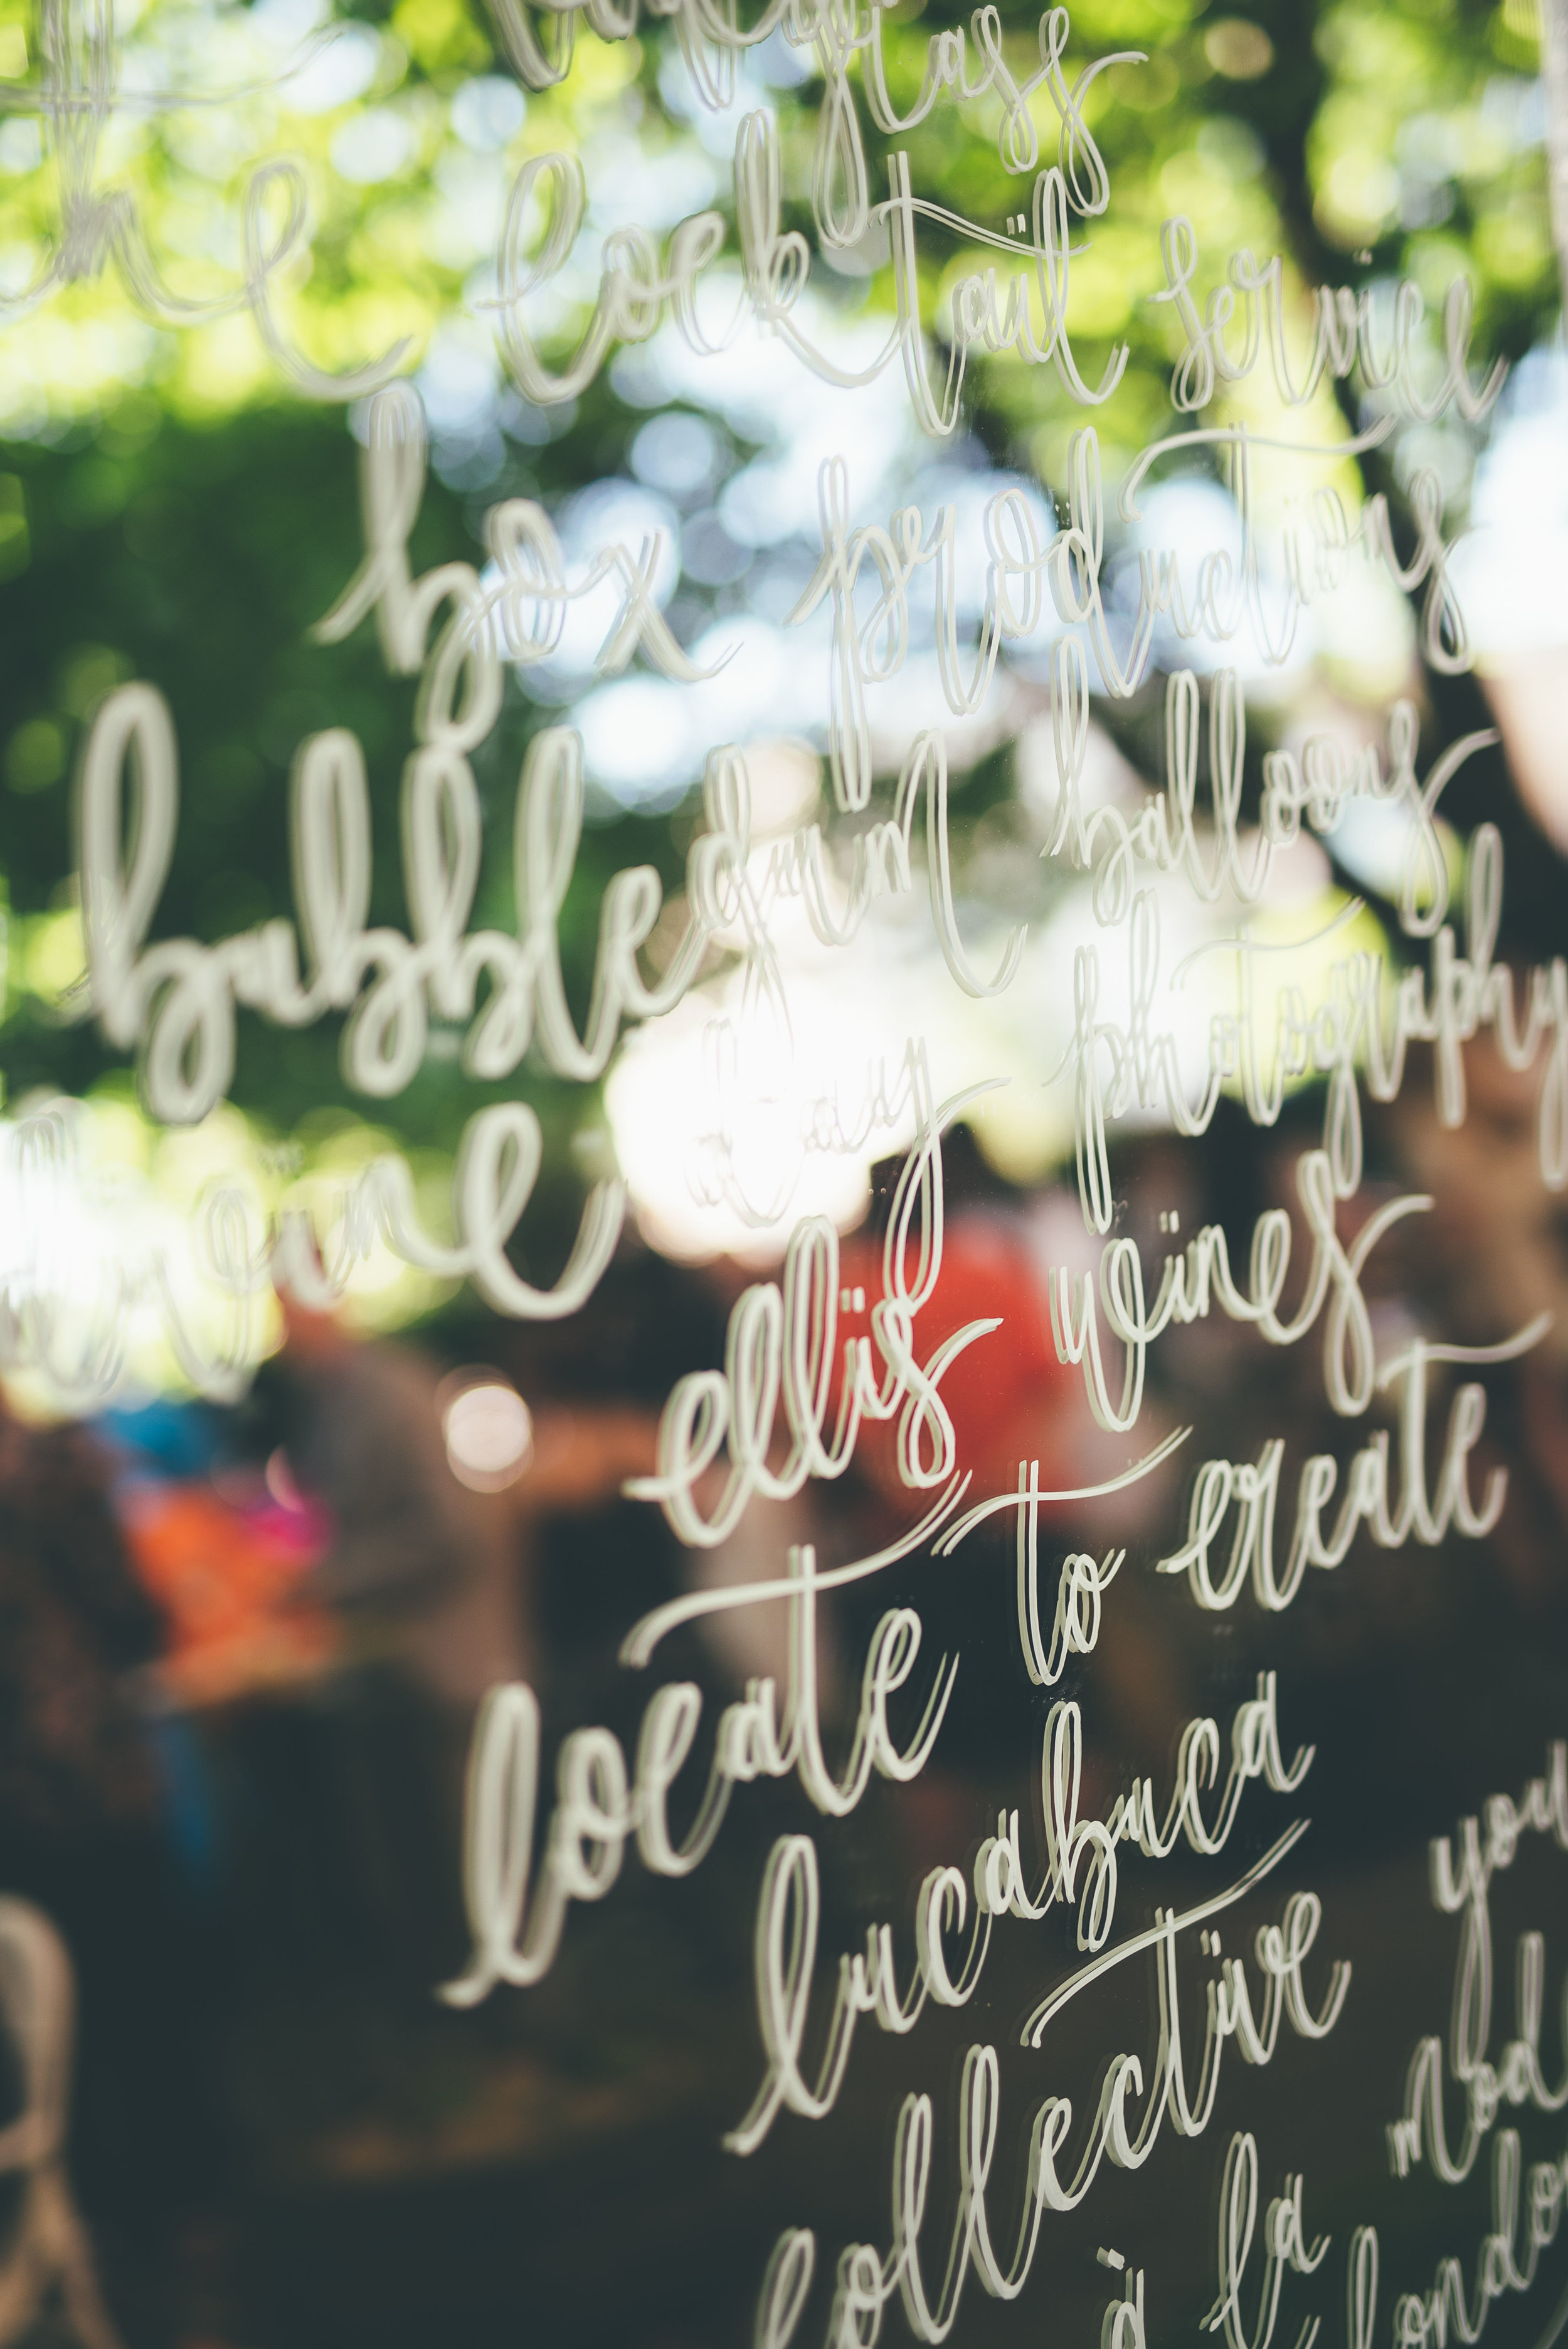 the cocktail service
box productions
bubblegum balloons
day photography
ellis wines
locate to create
lucabuca
collective
à la